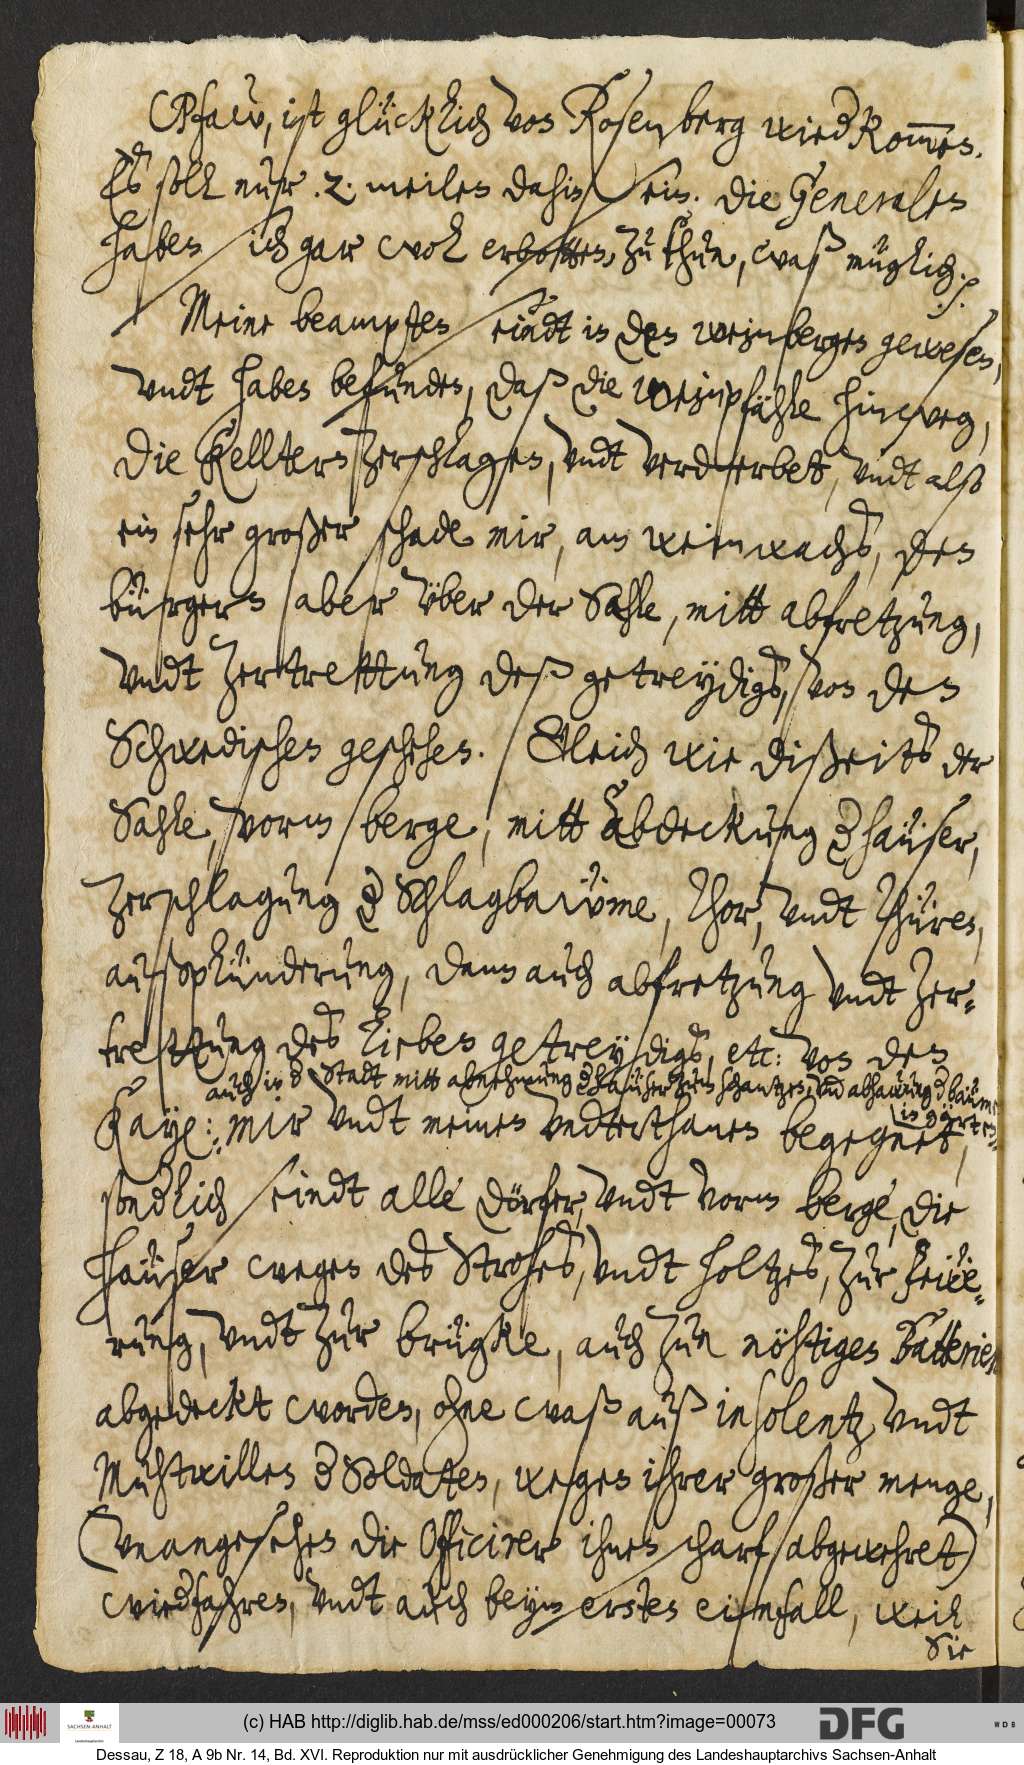 Pfaw, ist glücklich von Rosenberg wiedkom̅en.
Es soll nur .2. meilen dahin sein. Die Generalen
haben sich gar wol erbotten, zu thun, waß müglich ./.
Meine beampten seindt in den weinbergen gewesen,
vndt haben befunden, daß die weinpfähle hinweg,
die Kelltern zerschlagen, vndt verderbett, vndt also
ein sehr großer schade mir, am weinwachß, den
bürgern aber vber der Sahle, mitt abfretzung,
vndt zertrettung deß getreydigß, von den
Schwedischen geschehen. Gleich wie dißeits der
Sahle, vorm berge, mitt abdeckung d häuser,
zerschlagung d Schlagbaüme, Thor, vndt thüren,
außplünderung, dann auch abfretzung vndt zer-
trettung des lieben getreydigs, etc: von den
auch in d Stadt mitt abnehmung d häuser zum schantzen, vnd abhawung d baüme
in gärten
Kay: mir vndt meinen vndterthanen begegnet,
sindt alle dörfer, vndt vorm berge, die
häuser wegen des Strohes, vndt holtzes, zur feẅe-
rung, vndt zur brügke, auch zun nöhtigen Batterien
abgedeckt worden, ohne waß auß insolentz vndt
Muhtwillen d Soldaten, wegen ihrer großer menge,
(vnangesehen die Officirer ihnen scharf abgewehret)
wiedfahren, vndt auch beym ersten einfall, weil
Sie
(c) HAB http://diglib.hab.de/mss/ed000206/start.htm?image=00073
SACHSEN-ANHALT
DFG
WDB
Dessau, Z 18, A 9b Nr. 14, Bd. XVI. Reproduktion nur mit ausdrücklicher Genehmigung des Landeshauptarchivs Sachsen-Anhalt